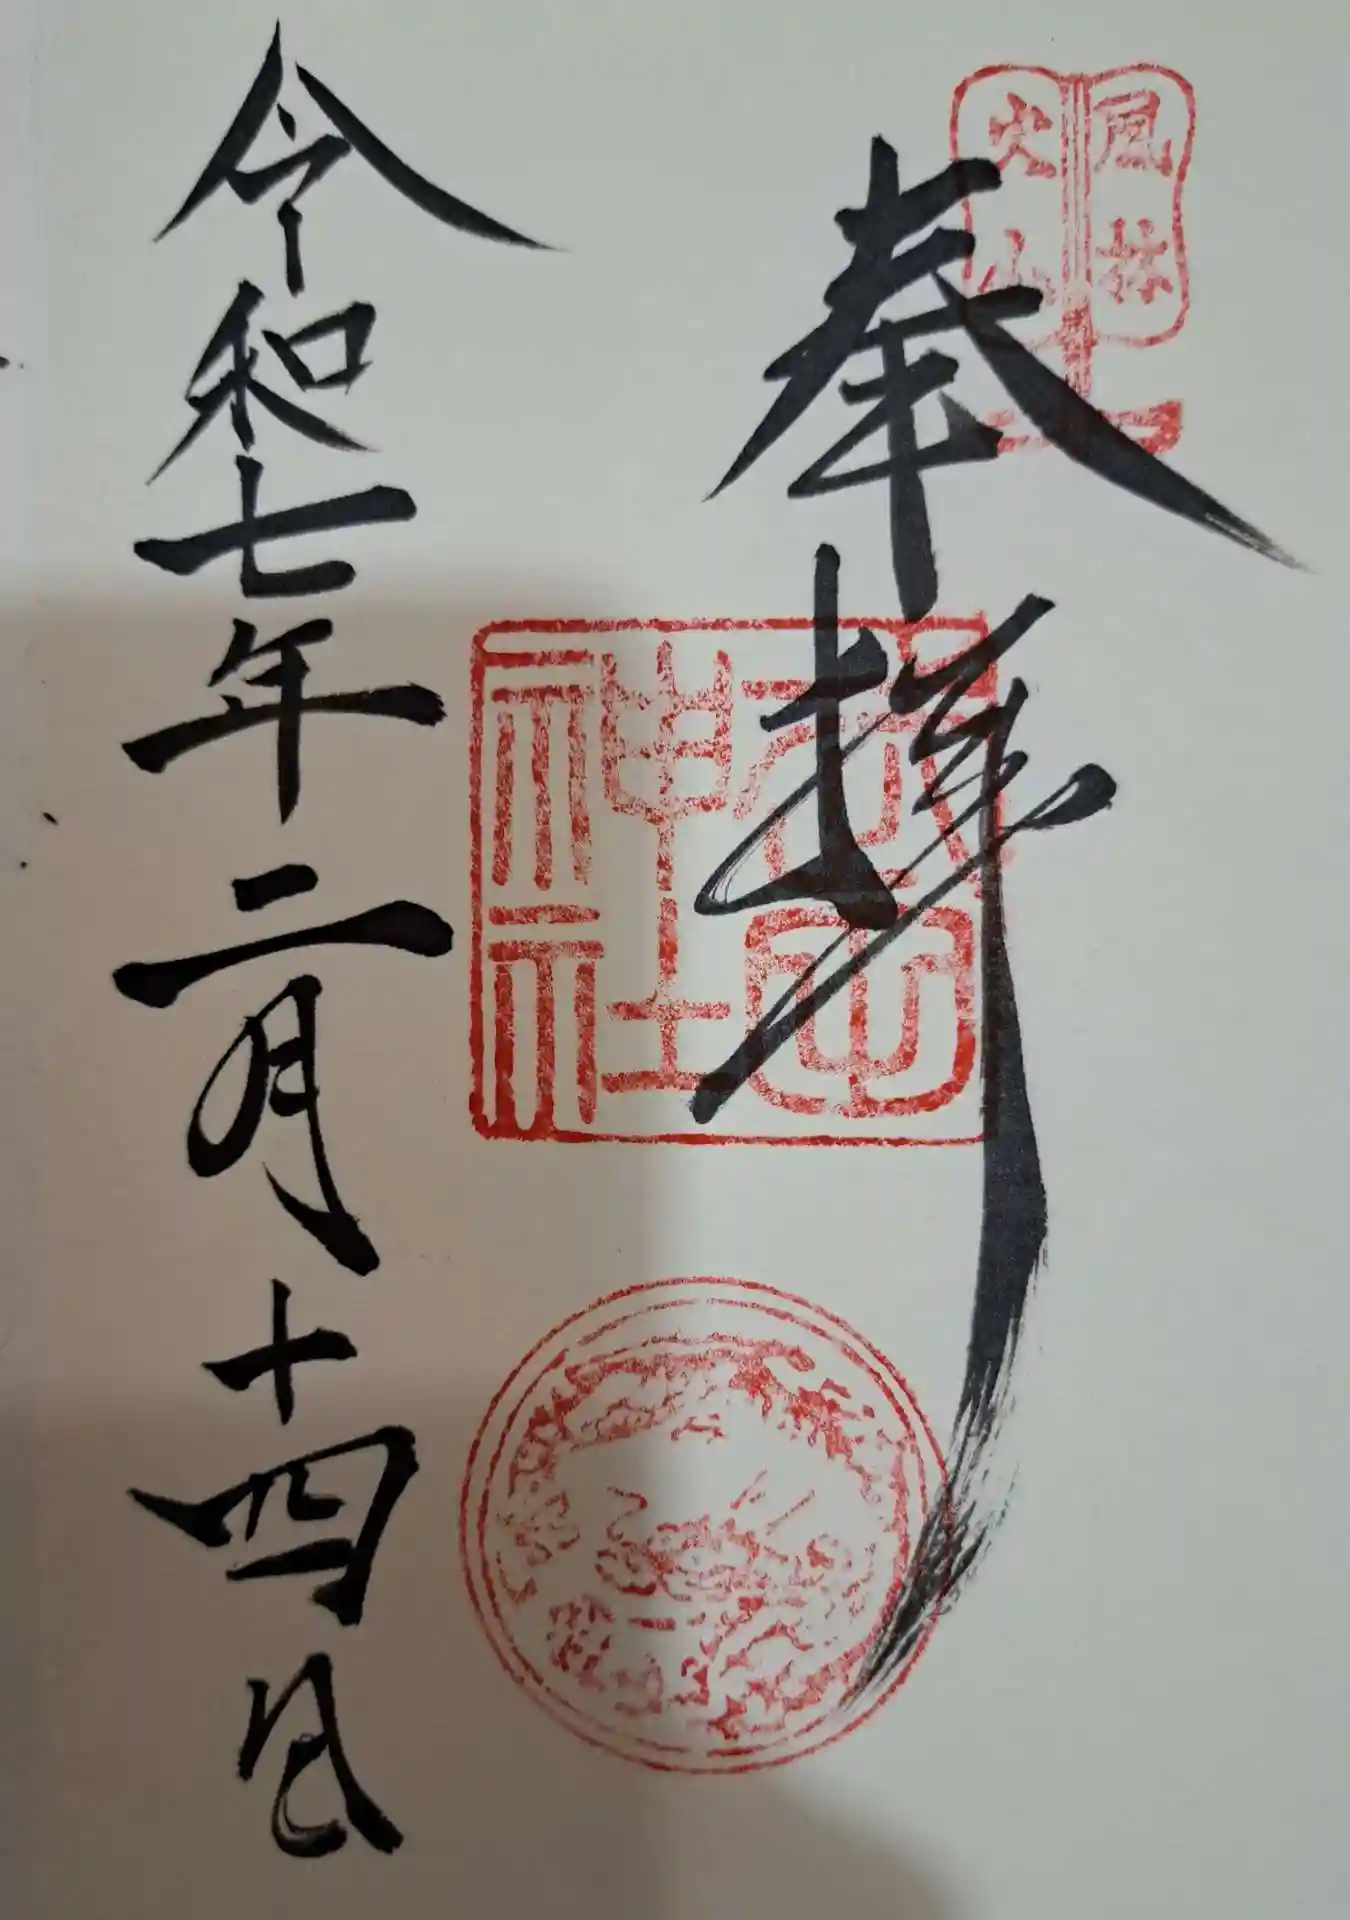 風林
火山
奉拝
武田
神社
令和七年二月十四日